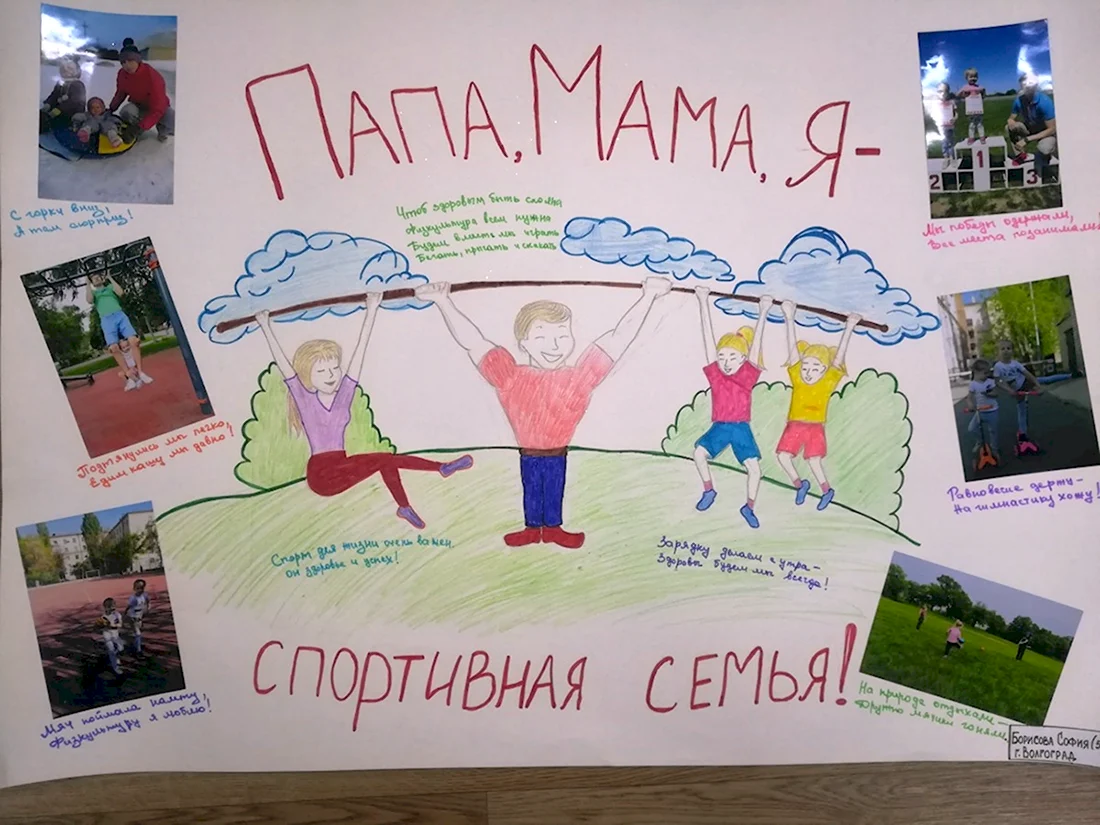 Папа, Мама, Я-
Чтоб здоровым быть сполна
Физкультура всем нужна
Будем вместе мы играть
Бегать, прыгать и скакать
С горки вниз,
А там сюрприз!
Мы победы одержали,
Все места позанимали!
Подтянулись мы легко,
Едим кашу мы давно!
Равновесие держу-
На гимнастику хожу!
Спорт для жизни очень важен,
он здоровье и успех!
Зарядку делаем с утра-
Здоровы будем мы всегда!
Мяч поймала налету,
Физкультуру я люблю!
На природе отдыхали-
Круто мячики гоняли.
СПОРТИВНАЯ СЕМЬЯ!
Борисова София (5
г. Волгоград
2
1
3